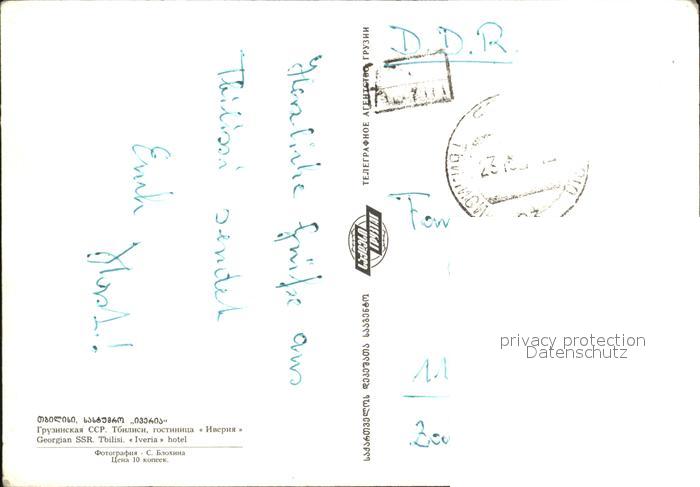 Herzliche Grüße aus
Tbilissi sendet
Euch
D.D.R.
Fam
11
ТЕЛЕГРАФНОЕ АГЕНТСТВО ГРУЗИИ
საქართველოს დეპეშათა სააგენტო
თბილისი, სასტუმრო „ივერია“
Грузинская ССР. Тбилиси, гостиница «Иверия»
Georgian SSR. Tbilisi. «Iveria» hotel
Фотография - С. Блохина
Цена 10 копеек.
privacy protection
Datenschutz